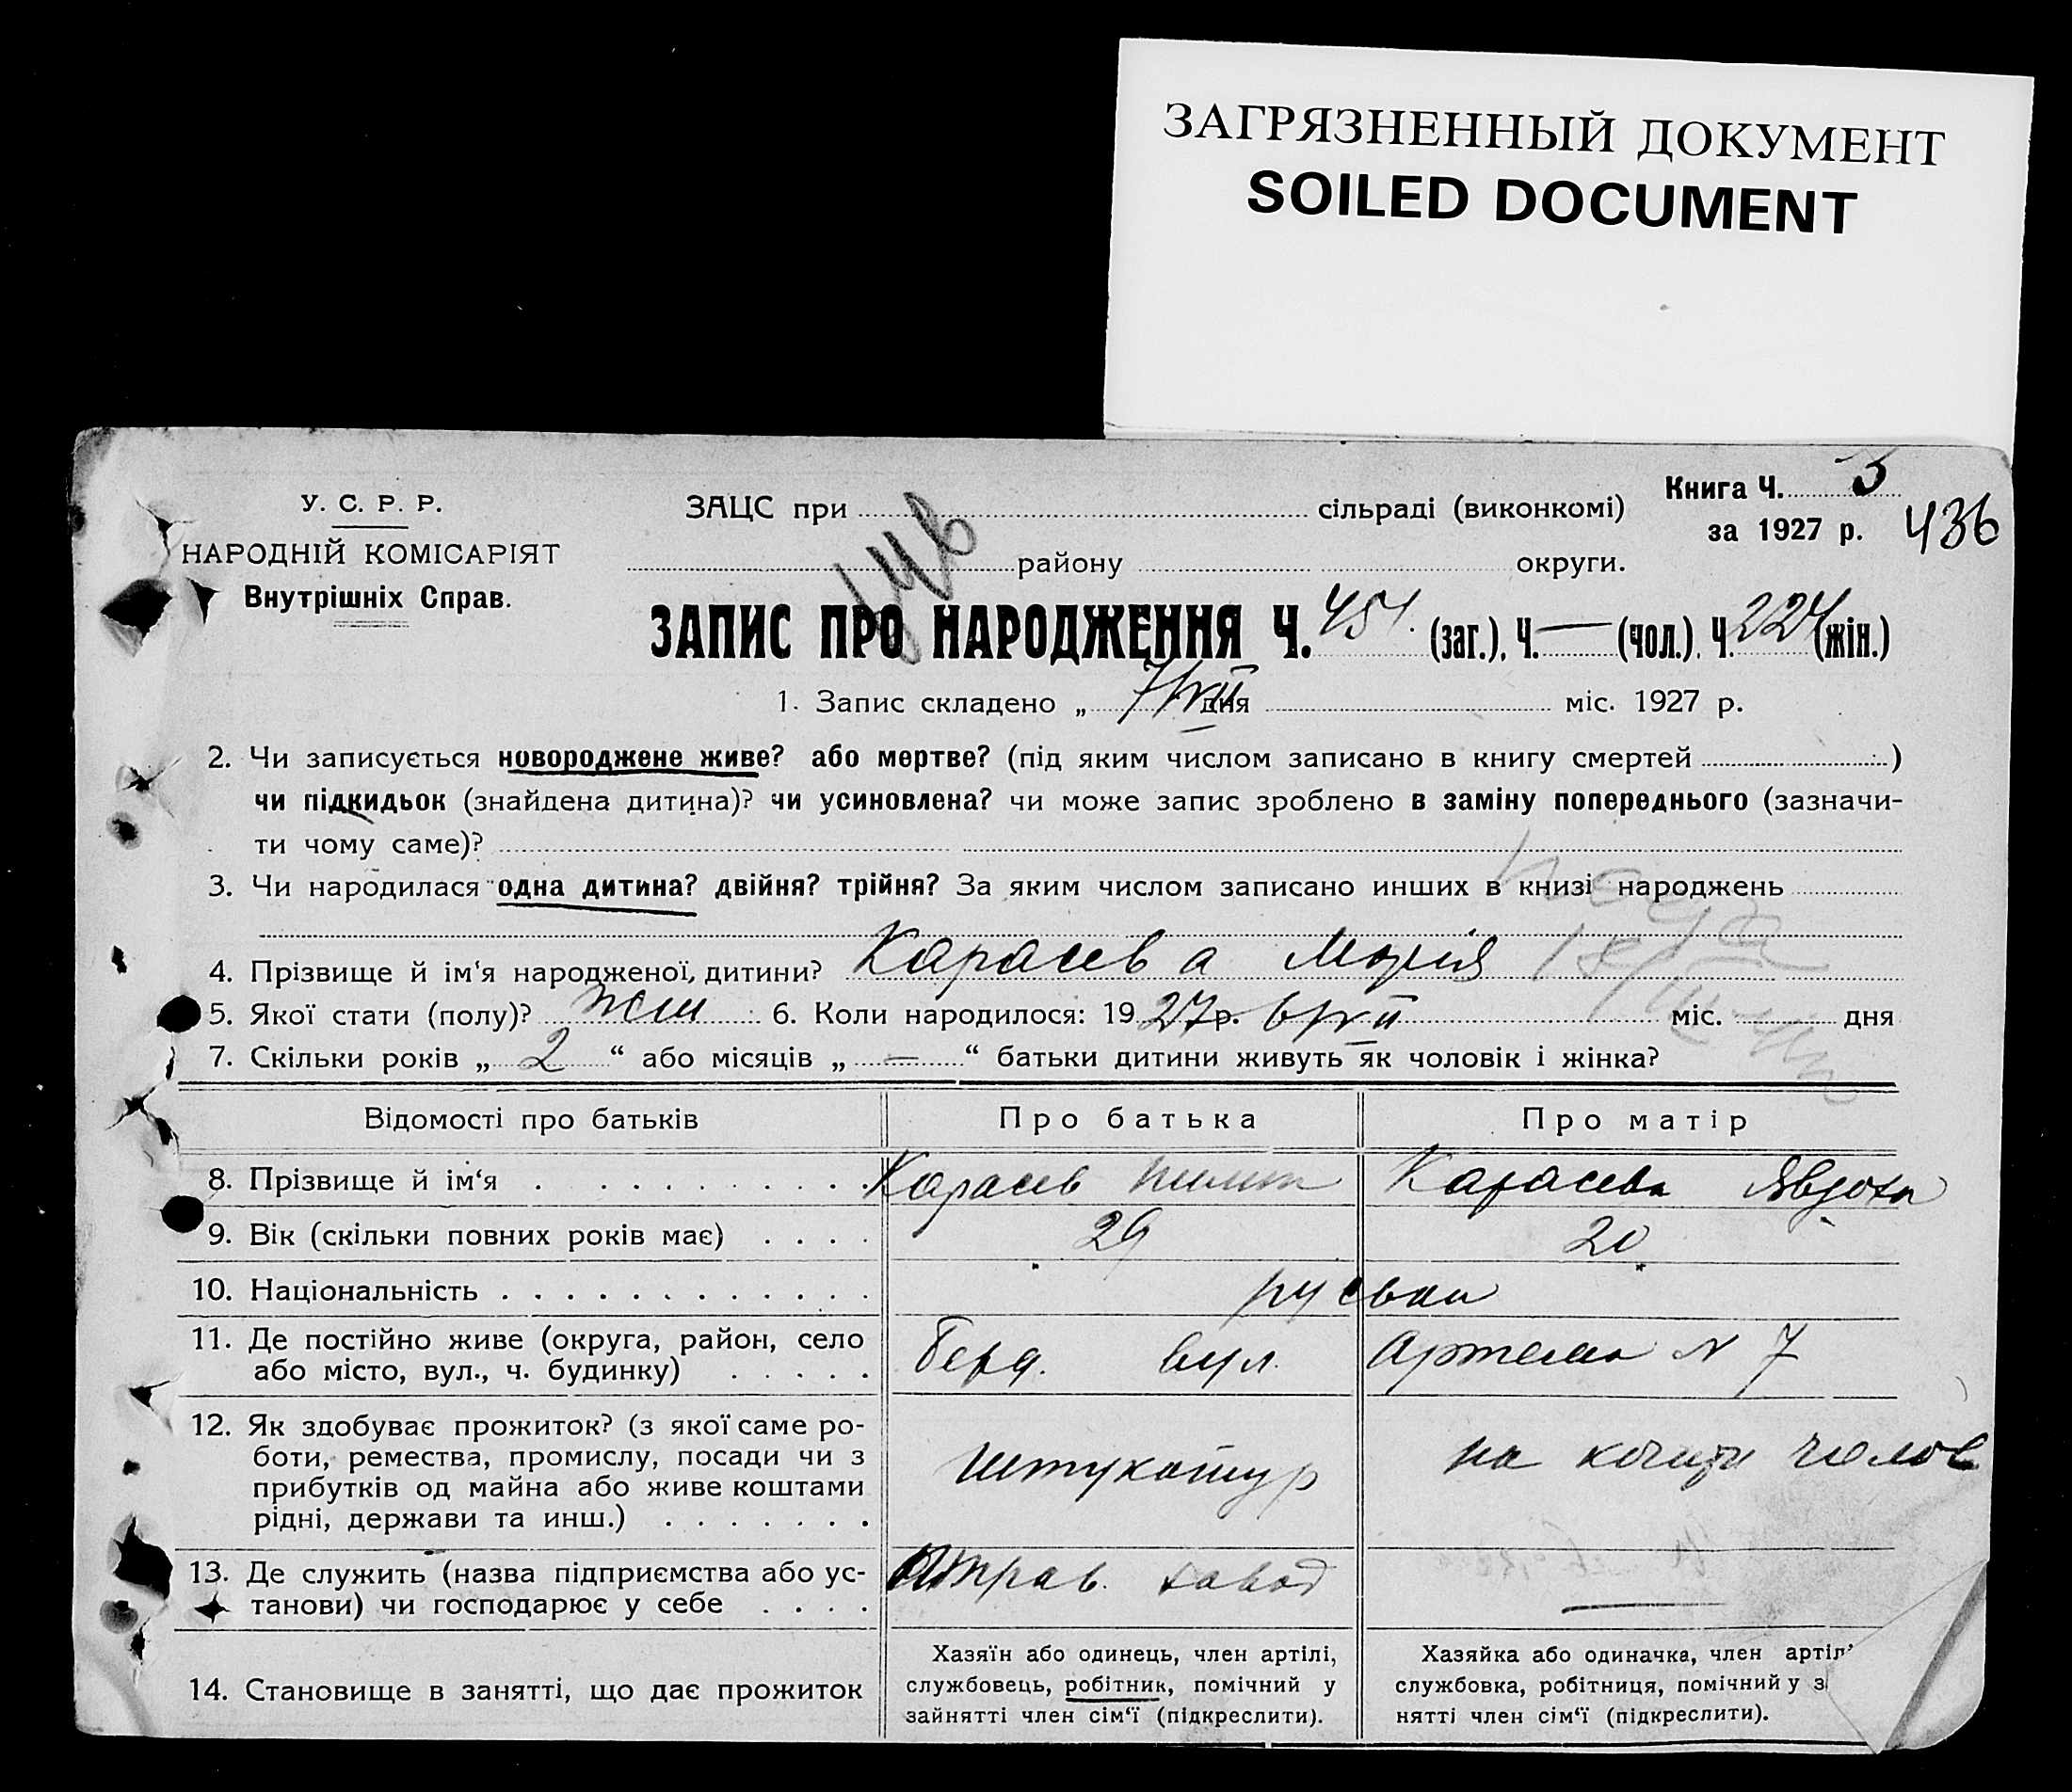 ЗАГРЯЗНЕННЫЙ ДОКУМЕНТ
SOILED DOCUMENT
У. С. Р. Р.
НАРОДНІЙ КОМІСАРІЯТ
Внутрішніх Справ.
ЗАЦС при сільраді (виконкомі)
району округи.
Книга Ч. 3
за 1927 р. 436
ЗАПИС ПРО НАРОДЖЕННЯ Ч. 451. (заг.), Ч. — (чол.), Ч. 224 (жін.)
1. Запис складено „ 7/VII дня міс. 1927 р.
2. Чи записується новороджене живе? або мертве? (під яким числом записано в книгу смертей )
чи підкидьок (знайдена дитина)? чи усиновлена? чи може запис зроблено в заміну попереднього (зазначи-
ти чому саме)?
3. Чи народилася одна дитина? двійня? трійня? За яким числом записано инших в книзі народжень
4. Прізвище й ім'я народженої дитини? Карасева Марія
5. Якої стати (полу)? жін 6. Коли народилося: 1927 р. 6/VII міс. дня
7. Скільки років „ 2 “ або місяців „ — “ батьки дитини живуть як чоловік і жінка?
Відомості про батьків Про батька Про матір
8. Прізвище й ім'я Карасев Карасева Явдоха
9. Вік (скільки повних років має) 29 20
10. Національність
11. Де постійно живе (округа, район, село
або місто, вул., ч. будинку) Берд. вул. Артема № 7
12. Як здобуває прожиток? (з якої саме ро-
боти, ремества, промислу, посади чи з
прибутків од майна або живе коштами
рідні, держави та инш.) Штукатур на кошти чолов
13. Де служить (назва підприємства або ус-
танови) чи господарює у себе завод —
14. Становище в занятті, що дає прожиток
Хазяїн або одинець, член артілі,
службовець, робітник, помічний у
зайнятті член сім'ї (підкреслити).
Хазяйка або одиначка, член артіл
службовка, робітниця, помічний у з
нятті член сім'ї (підкреслити).